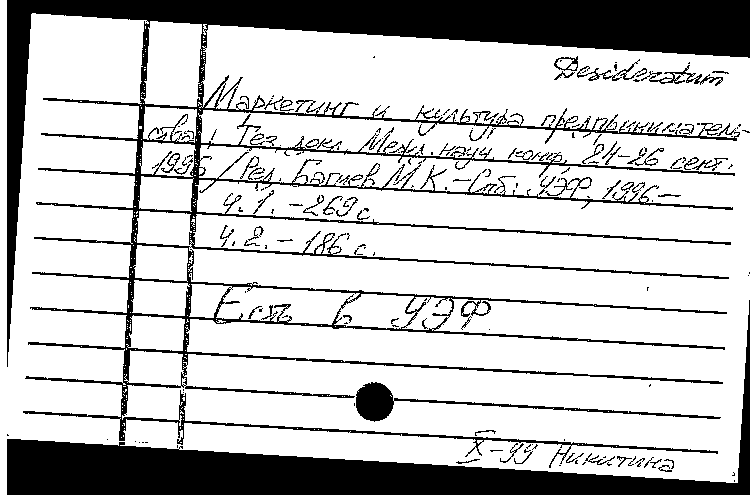 Desideratum
Маркетинг и культура предприниматель-
ства: Тез. докл. Межд. науч. конф., 24-26 сент.
1996 / Ред. Багиев М.К. - Спб: УЭФ, 1996. -
Ч. 1. - 269 с.
Ч. 2. - 186 с.
Есть в УЭФ
X-99 Никитина